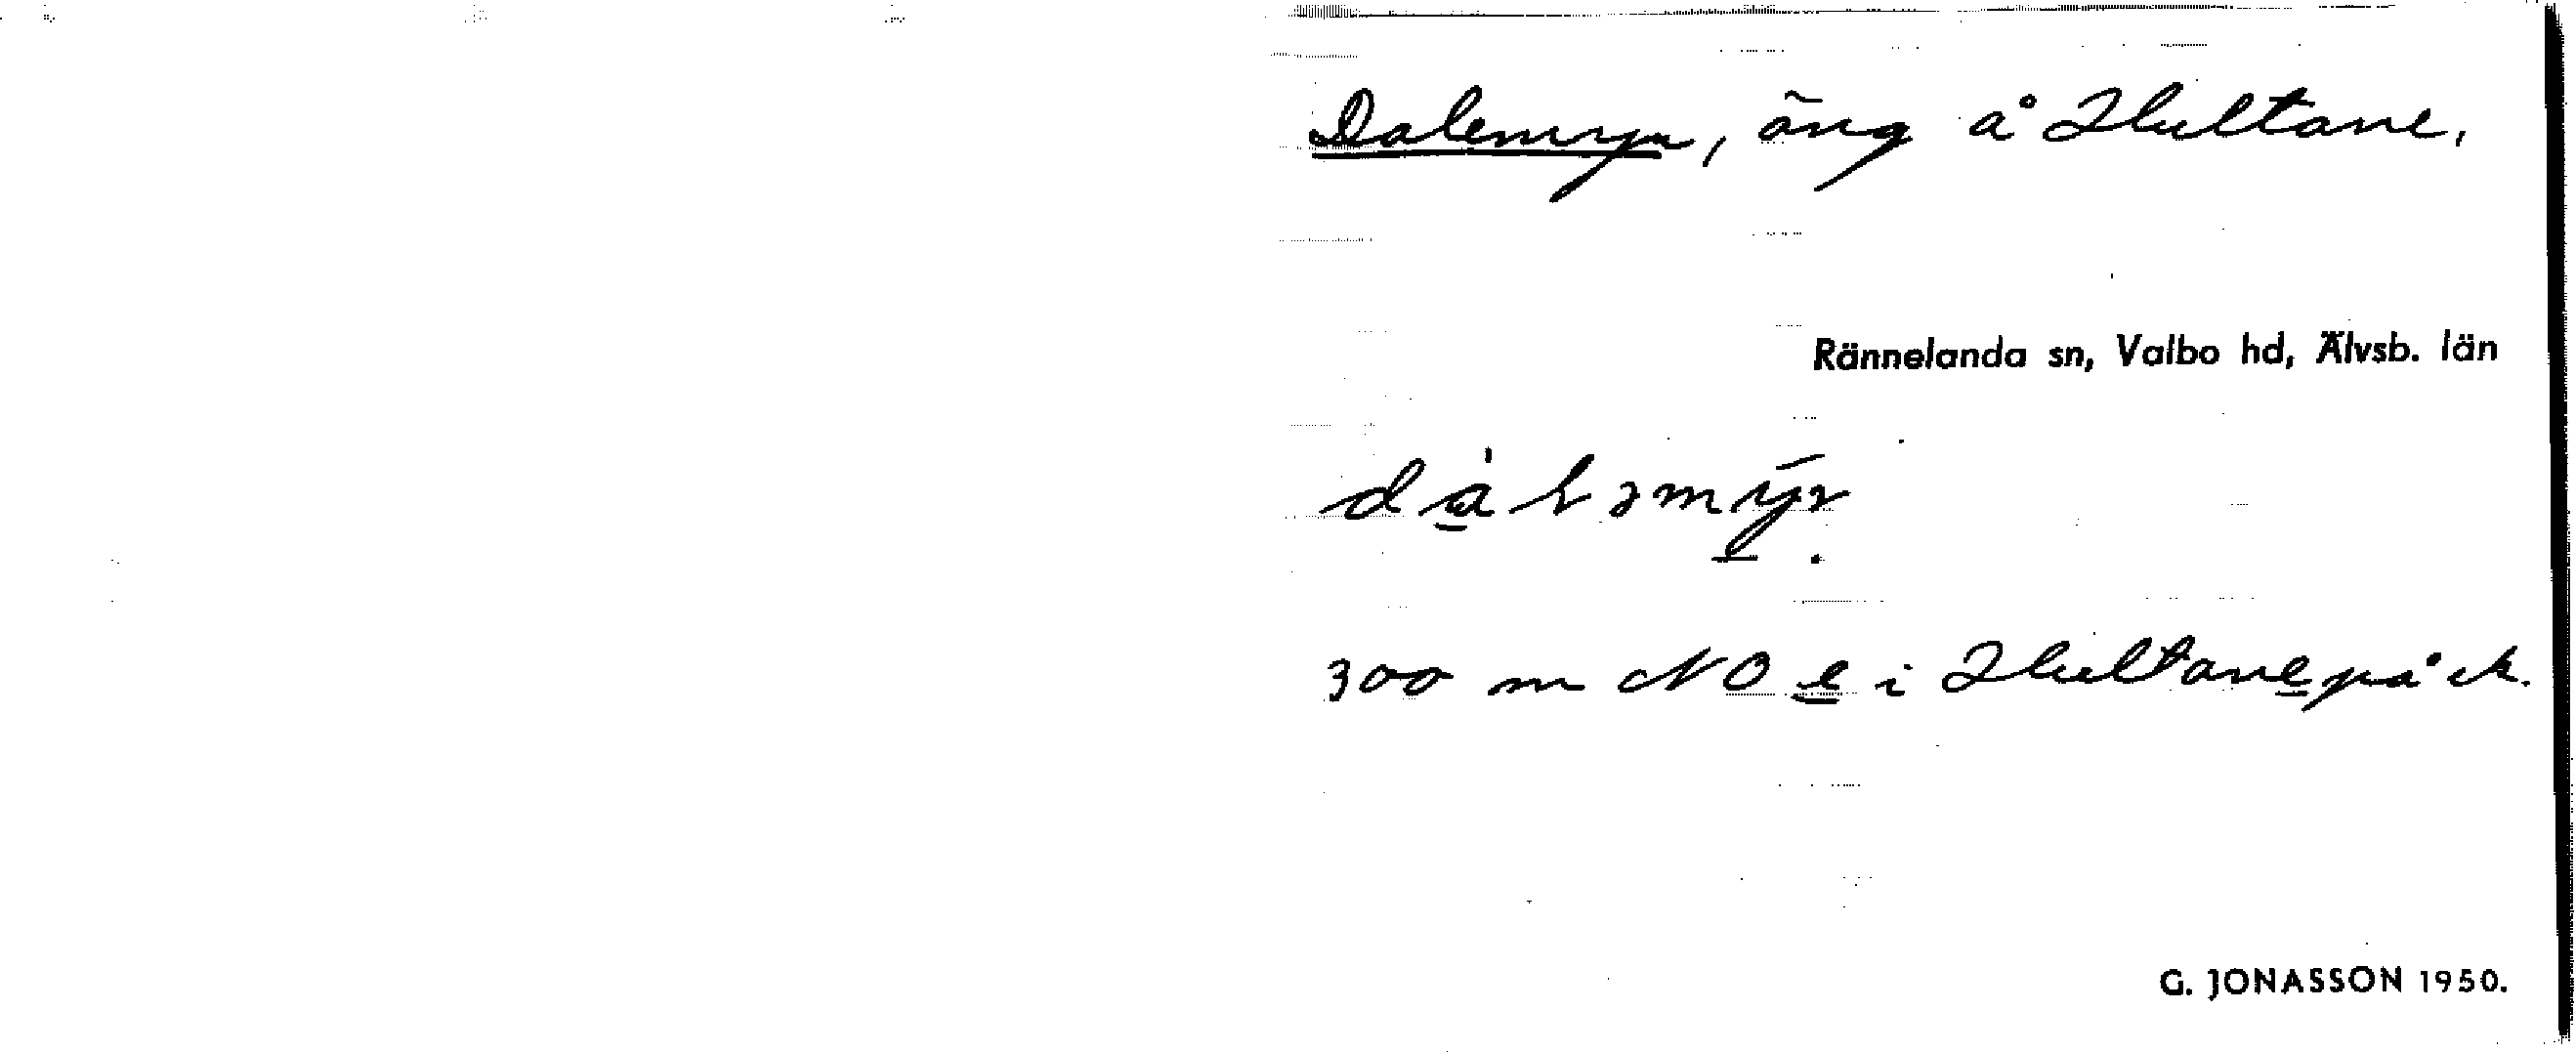 Dalemyr, äng å Hultane,
Rännelanda sn, Valbo hd, Älvsb. län
300 m NO e i Hultane på ek.
G. JONASSON 1950.